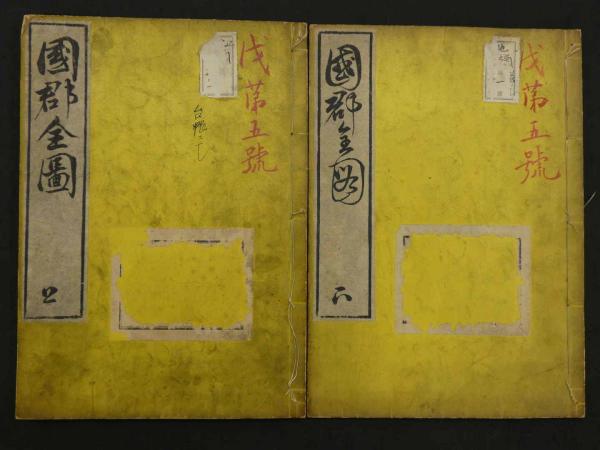 國郡全圖
上
戊第五號
國郡全图
下
戊第五號